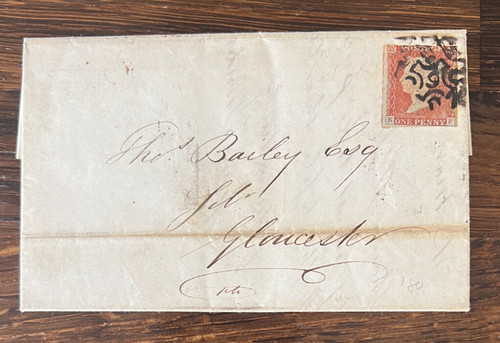 POSTAGE
ONE PENNY
Thos. Bailey Esq
Gloucester